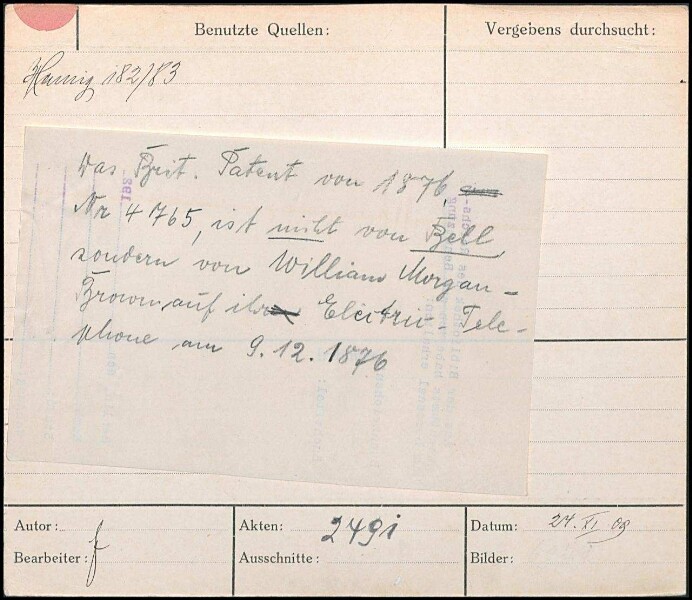 Benutzte Quellen:
Vergebens durchsucht:
Hennig 182/83
Das Brit. Patent von 1876,
Nr 4765, ist nicht von Bell
sondern von William Morgan-
Brown auf ihr Electric-Tele-
phone am 9.12.1876
193
Autor:
Akten: 249i
Datum: 27. XI 09
Bearbeiter: f
Ausschnitte:
Bilder: